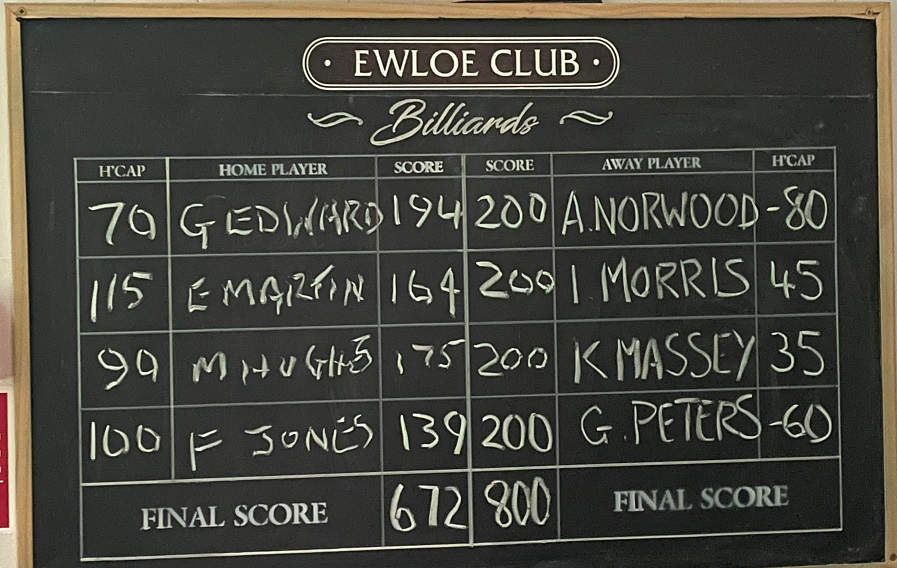 EWLOE CLUB
Billiards
H'CAP HOME PLAYER SCORE SCORE AWAY PLAYER H'CAP
70 G EDWARD 194 200 A.NORWOOD -80
115 E MARTIN 164 200 I. MORRIS 45
90 M HUGHES 175 200 K MASSEY 35
100 F JONES 139 200 G. PETERS -60
FINAL SCORE 672 800 FINAL SCORE